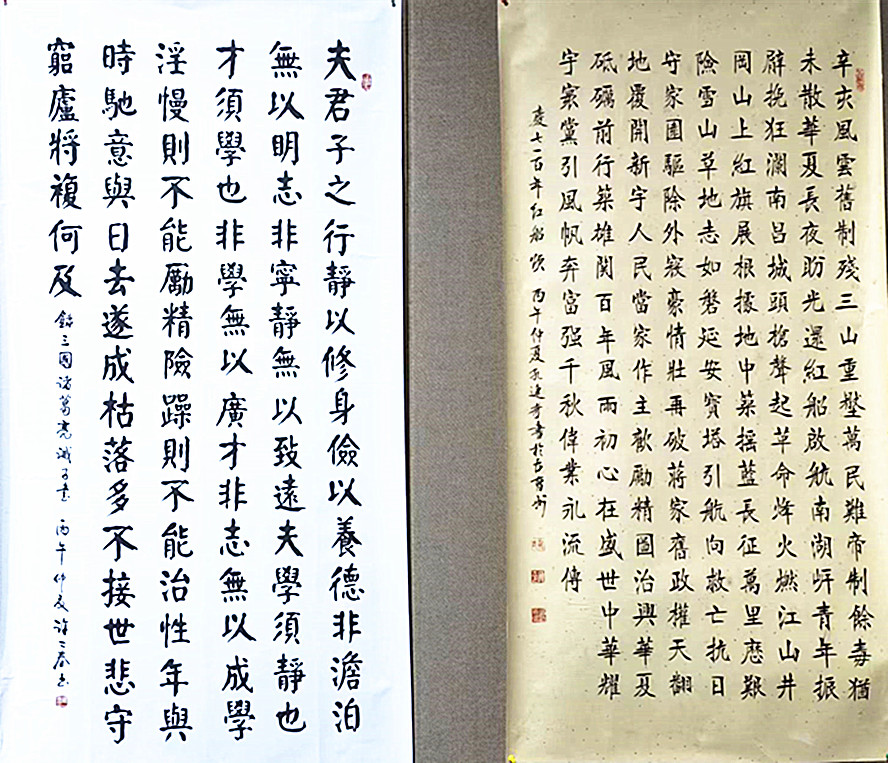 辛亥風雲舊制殘三山重壓萬民難帝制餘毒猶
未散華夏長夜盼光還紅船啟航南湖岸青年振
臂挽狂瀾南昌城頭槍聲起革命烽火燃江山井
岡山上紅旗展根據地中築搖藍長征萬里歷艱
險雪山草地志如磐延安寶塔引航向救亡抗日
守家園驅除外寇豪情壯再破蔣家舊政權天翻
地覆開新宇人民當家作主歡勵精圖治興華夏
砥礪前行築雄関百年風雨初心在盛世中華耀
宇寰黨引風帆奔富强千秋偉業永流傳
慶七一百年紅船頌 丙午仲夏
夫君子之行靜以修身儉以養德非澹泊
無以明志非寧靜無以致遠夫學須靜也
才須學也非學無以廣才非志無以成學
淫慢則不能勵精險躁則不能治性年與
時馳意與日去遂成枯落多不接世悲守
窮廬將複何及
錄三國諸葛亮誡子書 丙午仲夏